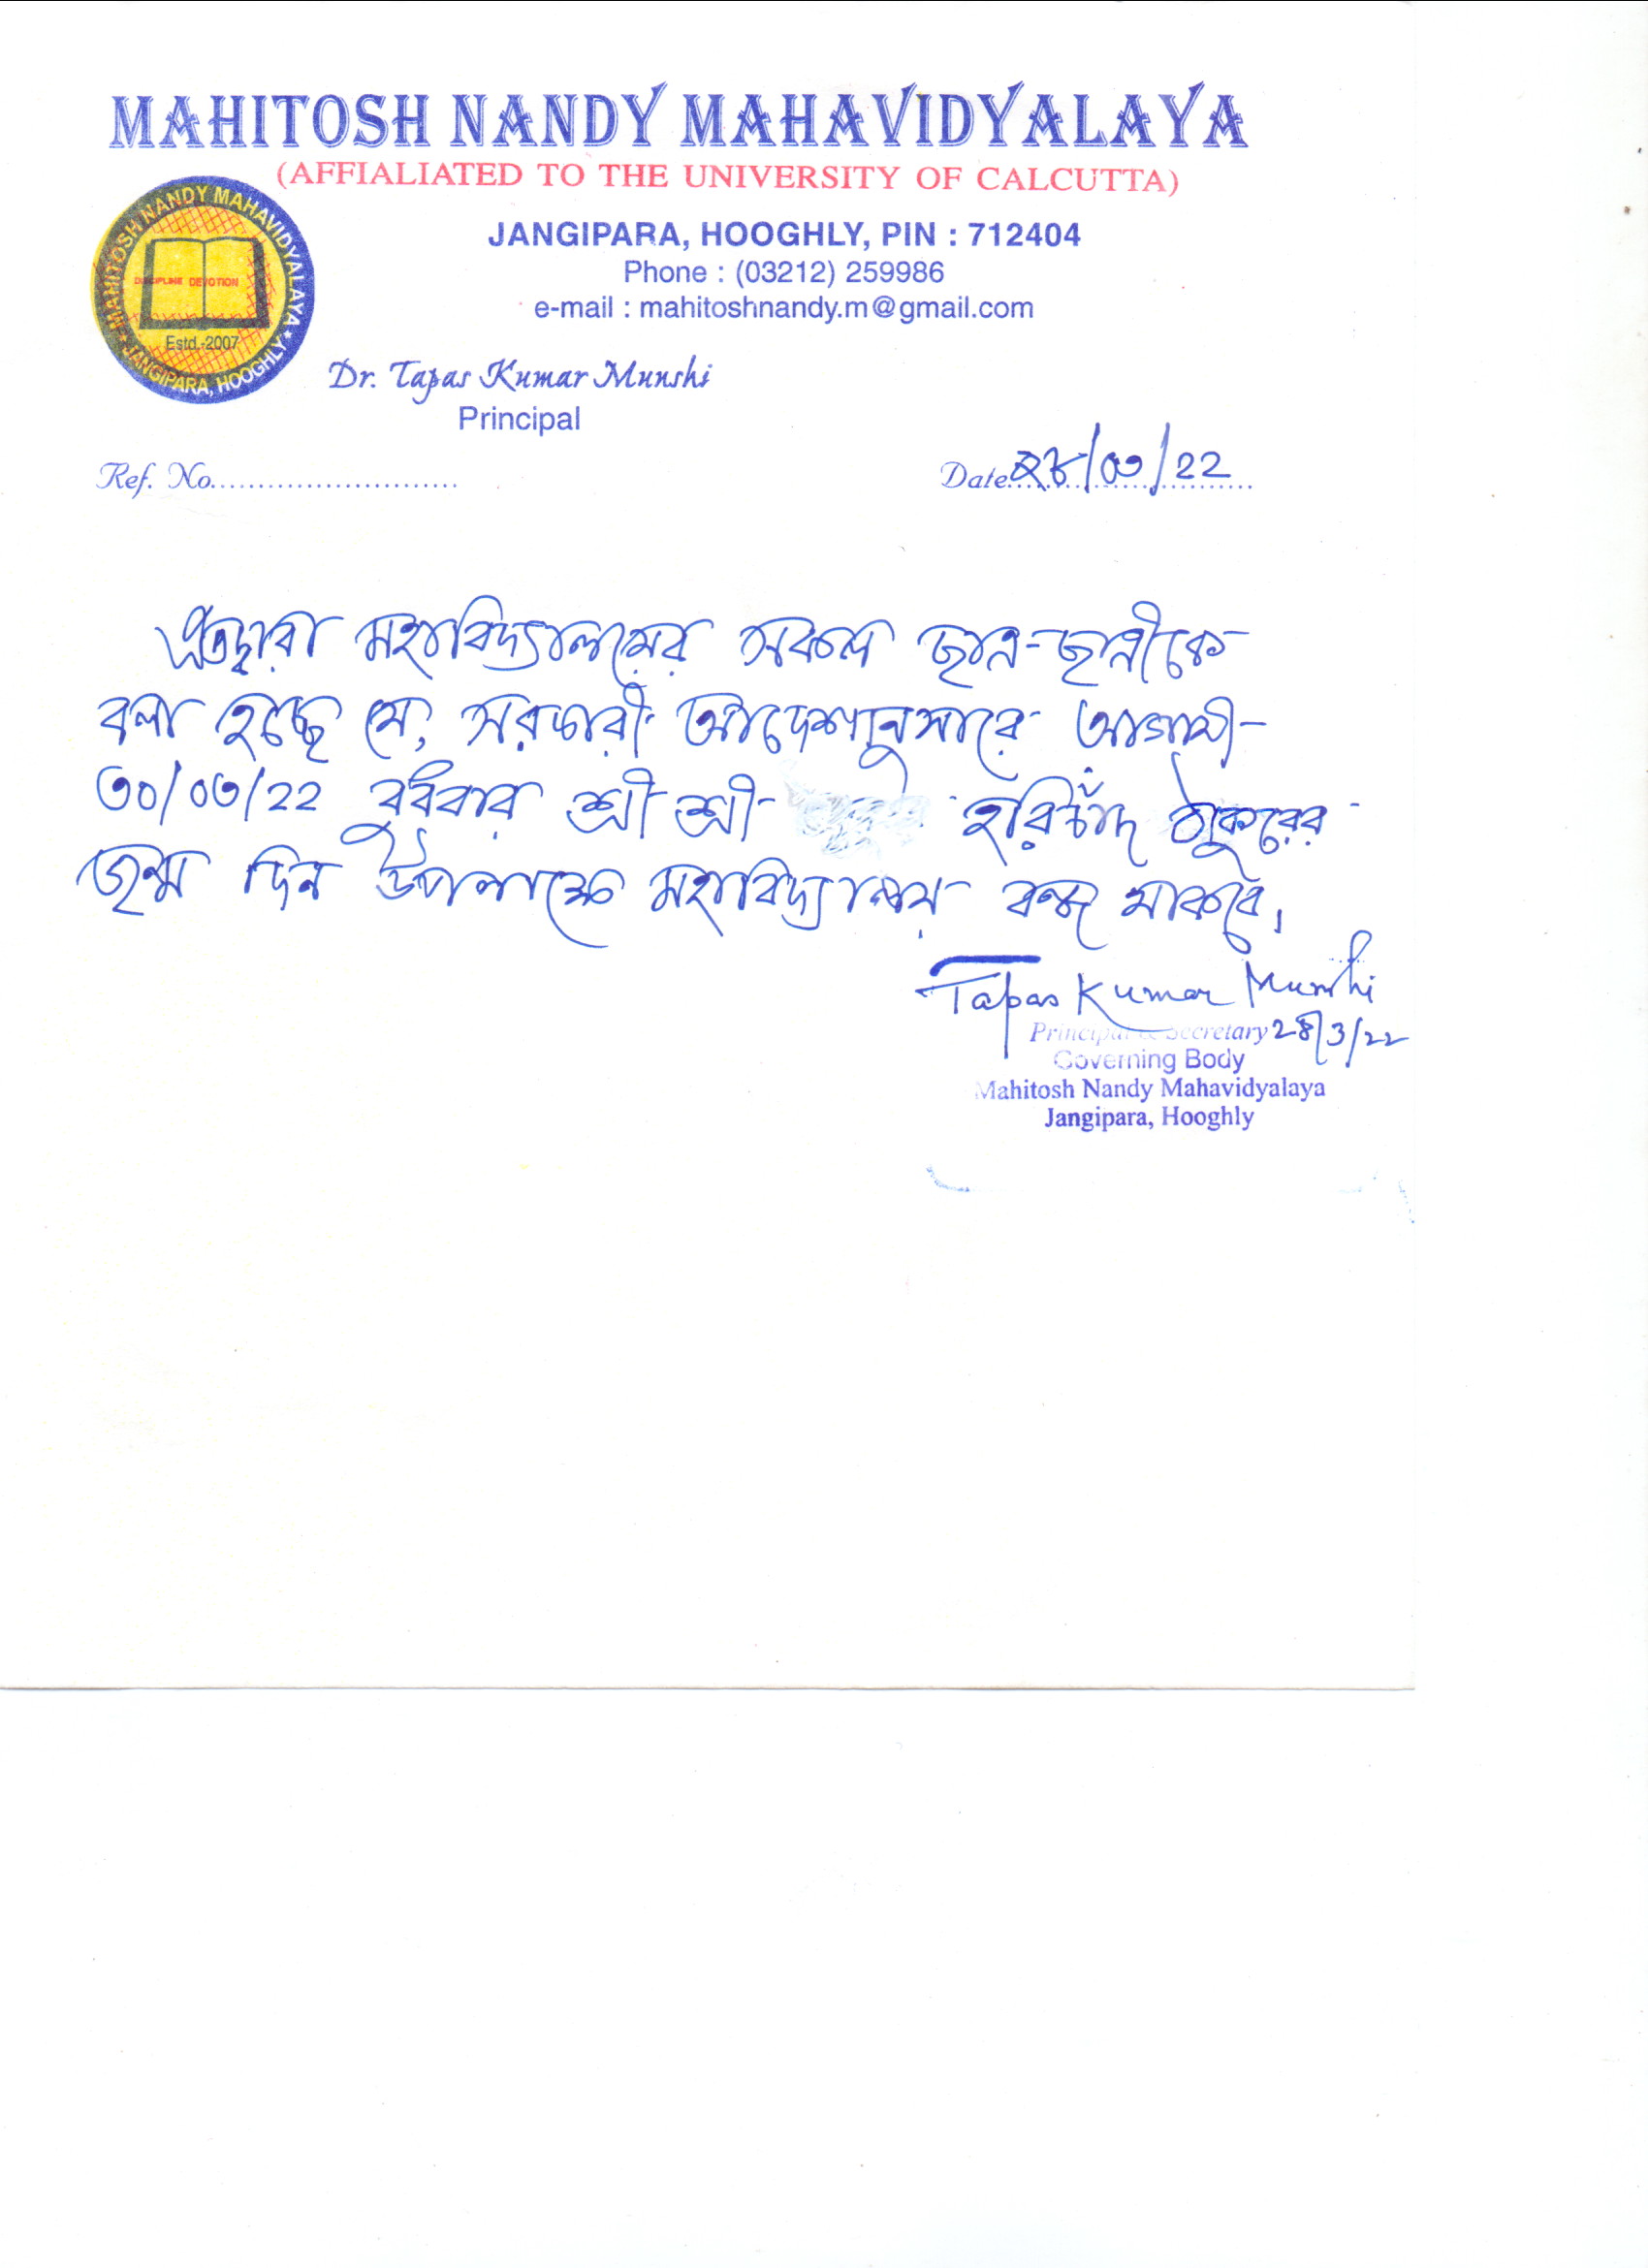 MAHITOSH NANDY MAHAVIDYALAYA
(AFFIALIATED TO THE UNIVERSITY OF CALCUTTA)
JANGIPARA, HOOGHLY, PIN : 712404
Phone : (03212) 259986
e-mail : mahitoshnandy.m@gmail.com
MAHITOSH NANDY MAHAVIDYALAYA
DISCIPLINE DEVOTION
Estd.-2007
JANGIPARA, HOOGHLY
Dr. Tapas Kumar Munshi
Principal
Ref. No.........................
Date 28/03/22
এতদ্বারা মহাবিদ্যালয়ের সকল ছাত্র-ছাত্রীকে
বলা হচ্ছে যে, সরকারী আদেশানুসারে আগামী
৩০/০৩/২২ বুধবার শ্রী শ্রী হরিচাঁদ ঠাকুরের
জন্ম দিন উপলক্ষে মহাবিদ্যালয় বন্ধ থাকবে।
Tapas Kumar Munshi
Principal & Secretary 28/3/22
Governing Body
Mahitosh Nandy Mahavidyalaya
Jangipara, Hooghly